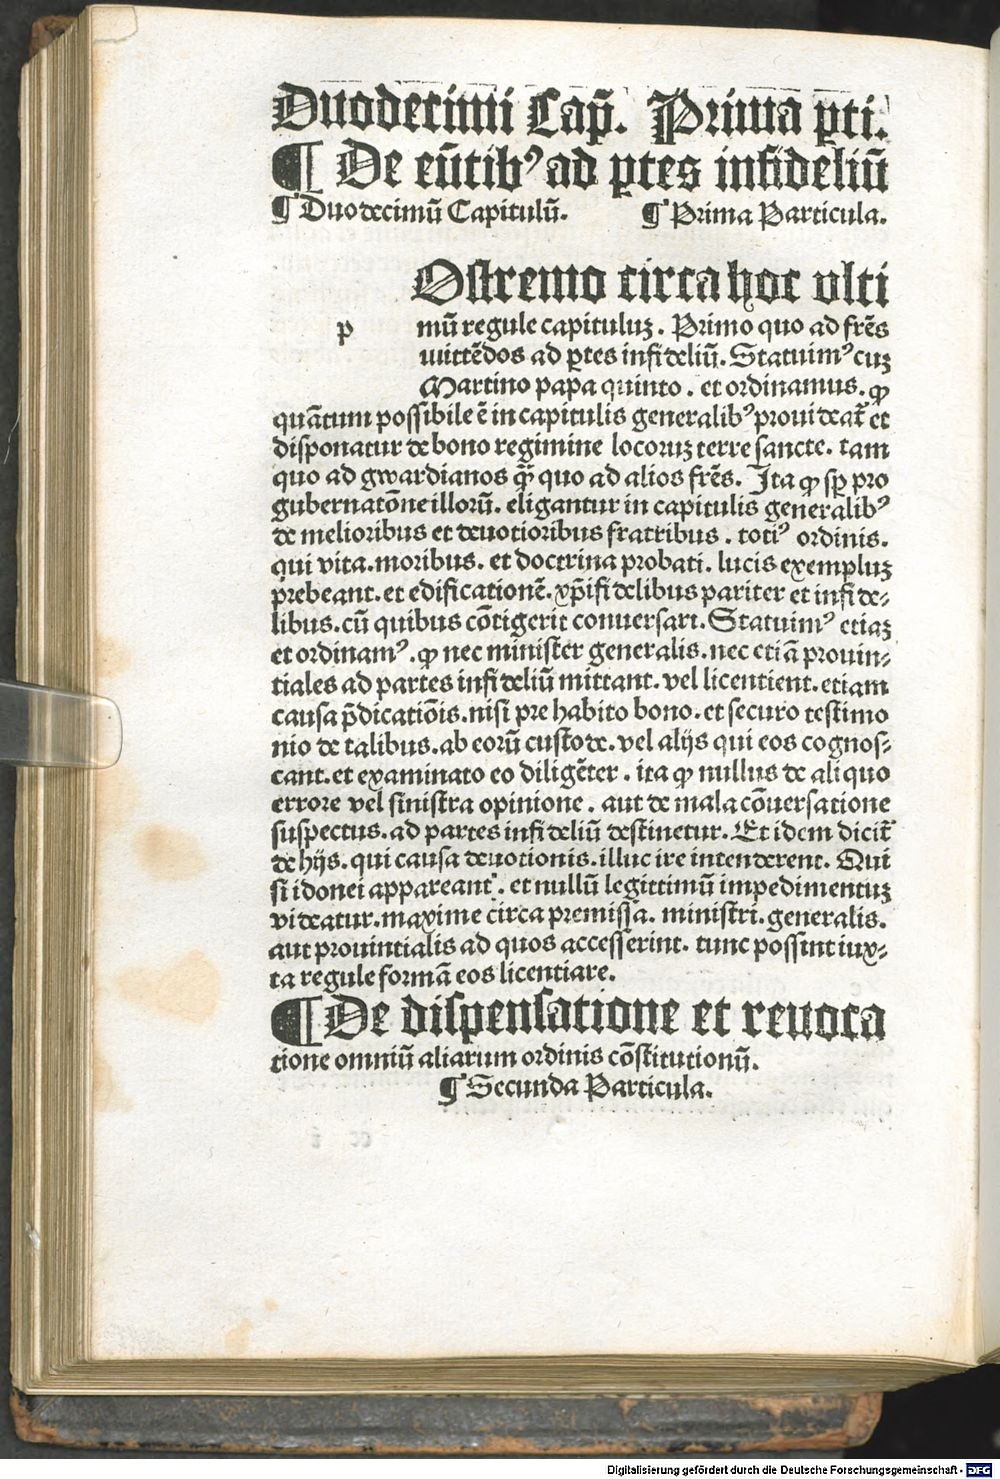 Duodecimi Cap̃. Prima ꝑti.
¶ De eũtibꝰ ad ꝑtes infideliũ
¶ Duodecimũ Capitulũ. ¶ Prima Particula.
Ostremo circa hoc vlti
p mũ regule capituluꝫ. Primo quo ad fr̃es
mittẽdos ad ꝑtes infideliũ. Statuimꝰ cuꝫ
Martino papa quinto. et ordinamus. ꝙ
quãtum possibile ẽ in capitulis generalibꝰ prouideat̃ et
disponatur de bono regimine locoruꝫ terre sancte. tam
quo ad gwardianos q̃ꝫ quo ad alios fr̃es. Ita ꝙ sp̃ pro
gubernatõne illorũ. eligantur in capitulis generalibꝰ
de melioribus et deuotioribus fratribus. totiꝰ ordinis.
qui vita. moribus. et doctrina probati. lucis exempluꝫ
prebeant. et edificationẽ. xp̃ifidelibus pariter et infide⸗
libus. cũ quibus cõtigerit conuersari. Statuimꝰ etiaꝫ
et ordinamꝰ. ꝙ nec minister generalis. nec etiã prouin⸗
tiales ad partes infideliũ mittant. vel licentient. etiam
causa p̃dicatiõis. nisi prehabito bono. et securo testimo
nio de talibus. ab eorũ custode. vel alijs qui eos cognos⸗
cant. et examinato eo diligẽter. ita ꝙ nullus de aliquo
errore vel sinistra opinione. aut de mala cõuersatione
suspectus. ad partes infideliũ destinetur. Et idem dicit̃
de hijs. qui causa deuotionis. illuc ire intenderent. Qui
si idonei appareant. et nullũ legittimũ impedimentuꝫ
videatur. maxime circa premissa. ministri. generalis.
aut prouintialis ad quos accesserint. tunc possint iux⸗
ta regule formã eos licentiare.
¶ De dispensatione et reuoca
tione omniũ aliarum ordinis cõstitutionũ.
¶ Secunda Particula.
Digitalisierung gefördert durch die Deutsche Forschungsgemeinschaft - DFG